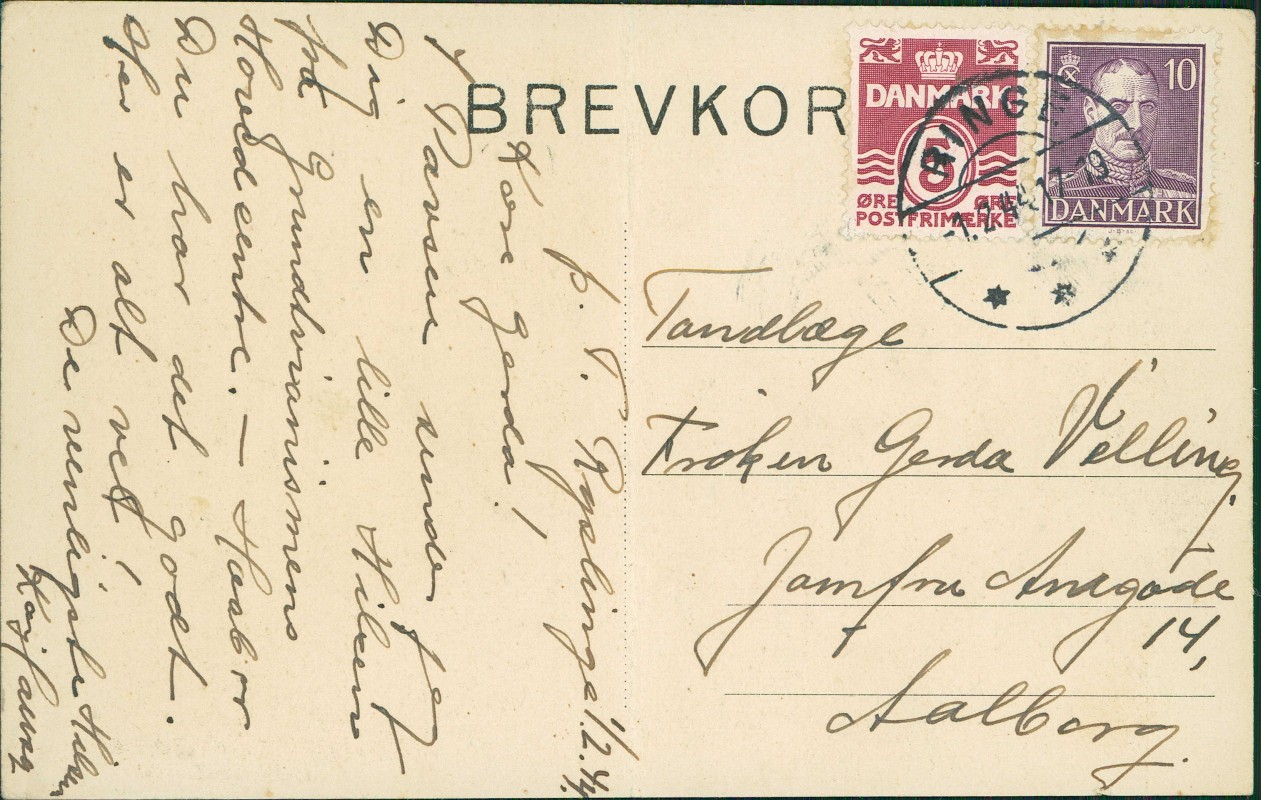 BREVKOR
DANMARK
5
ØRE ØRE
POSTFRIMÆRKE
10
DANMARK
RINGE
-1.2.44.17-19
p. t. Ryslinge 1/2. 44.
Kære Gerda!
I Pausen sender jeg
Dig en lille Hilsen
fra Grundtvianismens
Hovedcentre. — Haaber
Du har det godt.
Her er alt vel!
De venligste Hilsn
Kaj
Tandlæge
Frøken Gerda Velling,
Jomfru Anegade
14,
Aalborg.